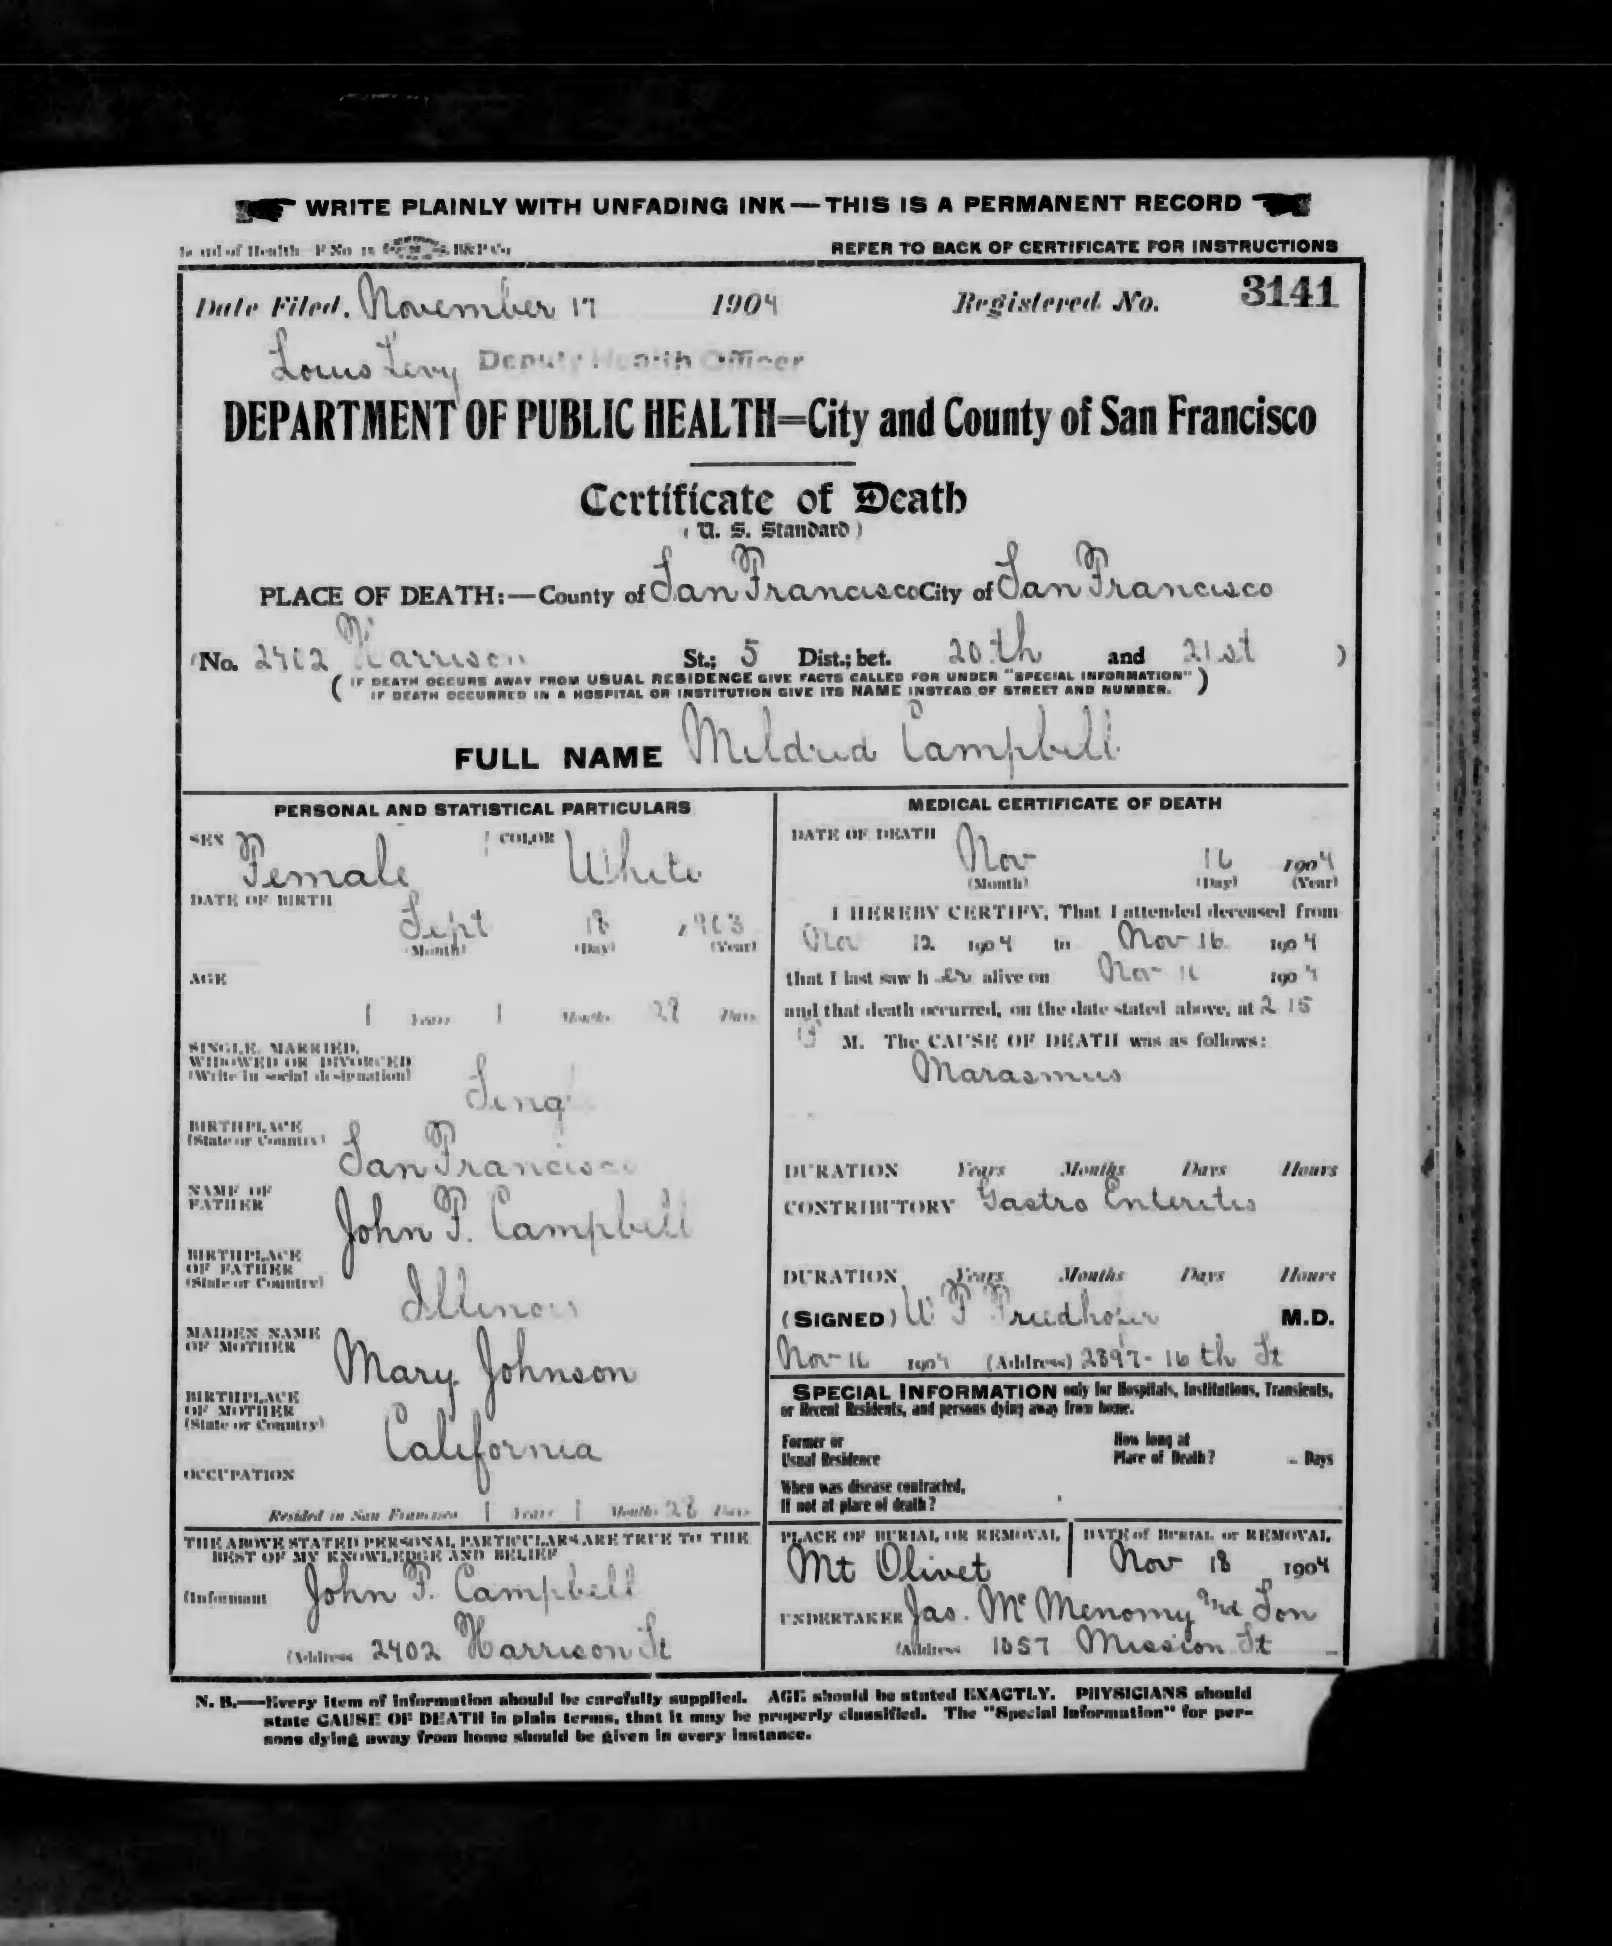 WRITE PLAINLY WITH UNFADING INK—THIS IS A PERMANENT RECORD
Board of Health F No 15 B&P Co
REFER TO BACK OF CERTIFICATE FOR INSTRUCTIONS
Date Filed, November 17 1904 Registered No. 3141
Louis Levy Deputy Health Officer
DEPARTMENT OF PUBLIC HEALTH=City and County of San Francisco
Certificate of Death
( U. S. Standard )
PLACE OF DEATH:—County of San Francisco City of San Francisco
(No. 2402 Harrison St.; 5 Dist.; bet. 20th and 21st )
( IF DEATH OCCURS AWAY FROM USUAL RESIDENCE GIVE FACTS CALLED FOR UNDER "SPECIAL INFORMATION" )
IF DEATH OCCURRED IN A HOSPITAL OR INSTITUTION GIVE ITS NAME INSTEAD OF STREET AND NUMBER.
FULL NAME Mildred Campbell
PERSONAL AND STATISTICAL PARTICULARS
SEX Female COLOR White
DATE OF BIRTH
Sept 18 1903
(Month) (Day) (Year)
AGE
1 Years 1 Months 28 Days
SINGLE, MARRIED,
WIDOWED OR DIVORCED
(Write in social designation)
Single
BIRTHPLACE
(State or Country)
San Francisco
NAME OF
FATHER
John F. Campbell
BIRTHPLACE
OF FATHER
(State or Country)
Illinois
MAIDEN NAME
OF MOTHER
Mary Johnson
BIRTHPLACE
OF MOTHER
(State or Country)
California
OCCUPATION
Resided in San Francisco 1 Years 1 Months 28 Days
THE ABOVE STATED PERSONAL PARTICULARS ARE TRUE TO THE
BEST OF MY KNOWLEDGE AND BELIEF
(Informant John F. Campbell
(Address 2402 Harrison St
MEDICAL CERTIFICATE OF DEATH
DATE OF DEATH
Nov 16 1904
(Month) (Day) (Year)
I HEREBY CERTIFY, That I attended deceased from
Nov 12 1904 to Nov 16 1904
that I last saw her alive on Nov 16 1904
and that death occurred, on the date stated above, at 2 15
M. The CAUSE OF DEATH was as follows:
Marasmus
DURATION Years Months Days Hours
CONTRIBUTORY Gastro Enteritis
DURATION Years Months Days Hours
(SIGNED) W F M.D.
Nov 16 1904 (Address) 2897 - 16th St
SPECIAL INFORMATION only for Hospitals, Institutions, Transients,
or Recent Residents, and persons dying away from home.
Former or
Usual Residence
How long at
Place of Death? Days
When was disease contracted,
If not at place of death?
PLACE OF BURIAL OR REMOVAL
Mt Olivet
DATE of BURIAL or REMOVAL
Nov 18 1904
UNDERTAKER Jas. McMenomy and Son
(Address 1057 Mission St
N. B.—Every item of information should be carefully supplied. AGE should be stated EXACTLY. PHYSICIANS should
state CAUSE OF DEATH in plain terms, that it may be properly classified. The "Special Information" for per-
sons dying away from home should be given in every instance.